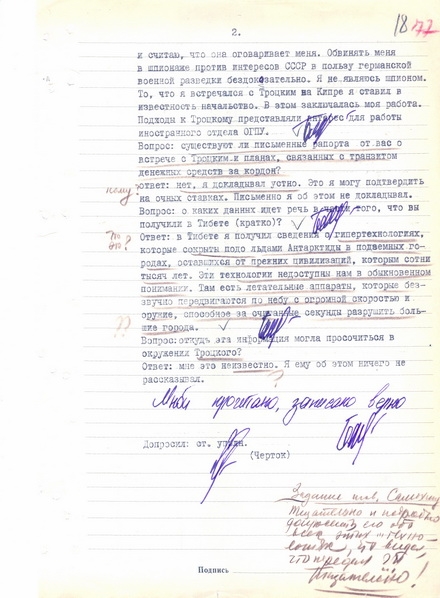 2.
18
77
и считаю, что она оговаривает меня. Обвинять меня
в шпионаже против интересов СССР в пользу германской
военной разведки бездоказательно. Я не являюсь шпионом.
То, что я встречался с Троцким на Кипре я ставил в
известность начальство. В этом заключалась моя работа.
Подходы к Троцкому представляли интерес для работы
иностранного отдела ОГПУ.
Вопрос: существуют ли письменные рапорта от вас о
встрече с Троцким и планах, связанных с транзитом
денежных средств за кордон?
кому?
ответ: нет, я докладывал устно. Это я могу подтвердить
на очных ставках. Письменно я об этом не докладывал.
Вопрос: о каких данных идет речь в того, что вы
получили в Тибете (кратко)?
Ответ: в Тибете я получил сведения о гипертехнологиях,
которые сокрыты подо льдами Антарктиды в подземных го-
родах, оставшихся от прежних цивилизаций, которым сотни
тысяч лет. Эти технологии недоступны нам в обыкновенном
понимании. Там есть летательные аппараты, которые без-
звучно передвигаются по небу с огромной скоростью и
оружие, способное за считанные секунды разрушить боль-
шие города.
??
Вопрос:откудь эта информация могла просочиться в
окружении Троцкого?
Ответ: мне это неизвестно. Я ему об этом ничего не
рассказывал.
?
Мной прочитано, записано верно
Допросил: ст. уполн.
(Черток)
Задание
тщательно и подробно
его обо
всех этих
Тщательно!
Подпись